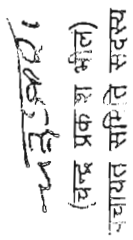 (चन्द्र प्रकाश मील)
पंचायत समिति सदस्य